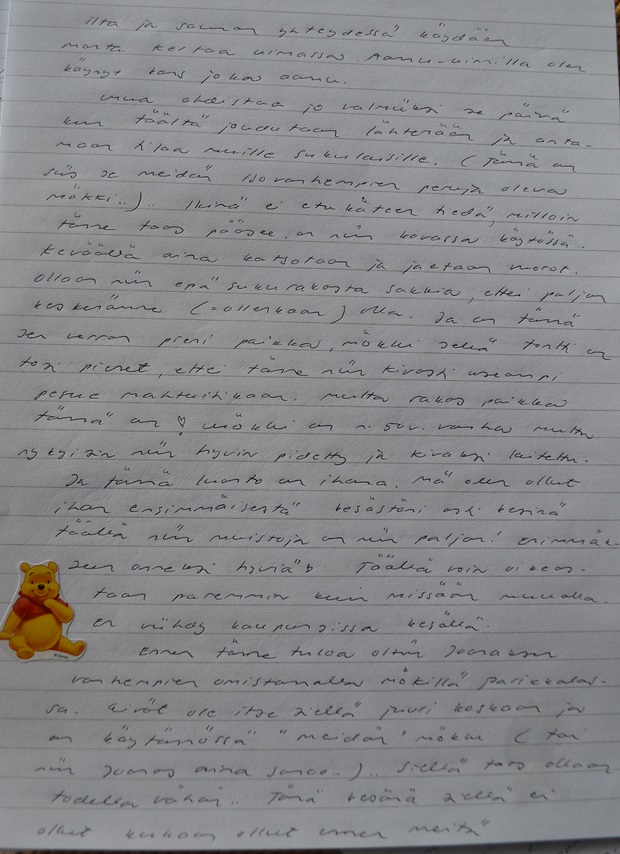 ilta ja saunan yhteydessä käydään
monta kertaa uimassa. Aamu-uimilla olen
käynyt taas joka aamu.
Mua ahdistaa jo valmiiksi se päivä
kun täältä joudutaan lähtemään ja anta-
maan tilaa muille sukulaisille. (Tämä on
siis se meidän isovanhempien peruja oleva
mökki..).. Ikinä ei etukäteen tiedä, milloin
tänne taas pääsee, on niin kovassa käytössä..
Keväällä aina katsotaan ja jaetaan vuorot.
Ollaan niin epäsukurakasta sakkia, ettei paljon
keskenämme (=ollenkaan) olla. Ja on tämä
sen verran pieni paikka, mökki sekä tontti on
tosi pienet, ettei tänne niin kivasti useampi
perhe mahtuisikaan. Mutta rakas paikka
tämä on ♡ Mökki on n. 50v. vanha mutta
nykyisin niin hyvin pidetty ja kivaksi laitettu.
Ja tämä luonto on ihana. Mä olen ollut
ihan ensimmäisestä kesästäni asti kesinä
täällä niin muistoja on niin paljon! Enimmäk-
seen onneksi hyviä Täällä voin oikeas-
taan paremmin kuin missään muualla.
En viihdy kaupungissa kesällä.
Ennen tänne tuloa oltiin Joonaksen
vanhempien omistamalla mökillä Parikkalas-
sa. Eivät ole itse siellä juuri koskaan ja
on käytännössä "meidän" mökki (tai
niin Joonas aina sanoo..).. Siellä taas ollaan
todella vähän.. Tänä kesänä siellä ei
ollut kukaan ollut ennen meitä